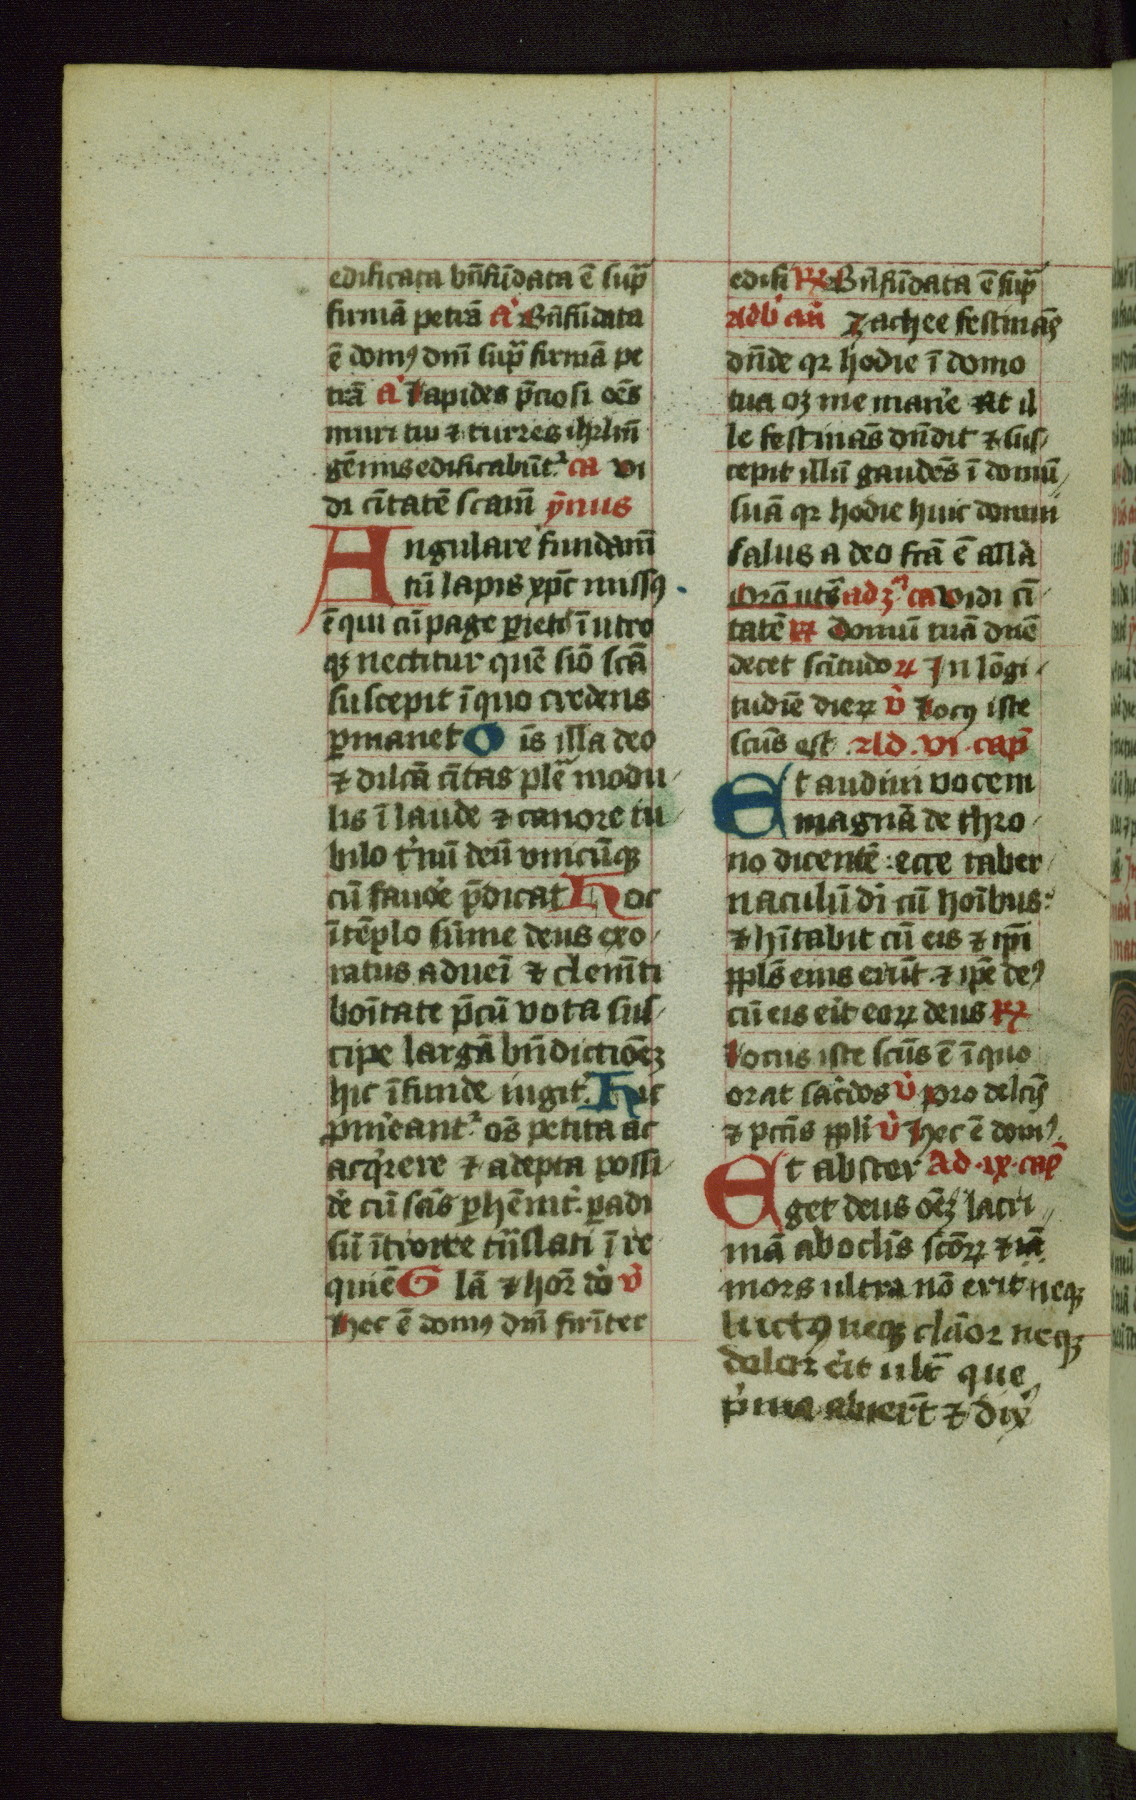 edificata bn̄fūdata ē sup̄
firmā petrā a᷎ Bn̄fūdata
ē domꝰ dn̄i sup̄ firmā pe
trā a᷎ Lapides p̄ciosi oēs
muri tui ⁊ turres ihrlm̄
gēmis edificabūt᷎ ca vi
di cītatē scam̄ ȳnus
Angulare fundam̄
tū lapis xp̄c missꝰ
ē qui cū page pietū ī utro
qꝫ nectitur quē siō scā
suscepit ī quo credens
ꝑmanet Oīs illa deo
⁊ dilcā cītas plē modu
lis ī laude ⁊ canore iu
bilo tͥnū deū vnicūqꝫ
cū fauōe p̄dicat Hoc
ītēplo sūme deus exo
ratus adueī ⁊ clemēti
boītate p̄cū vota sus
cipe largā bn̄dictiōeꝫ
hic īfunde iugit᷎ Hic
ꝑmēeant᷎ oēs petita ac
acq̄rere ⁊ adepta possi
dē cū scīs ꝑhēnit᷎ ꝑadi
sū ītroire tn̄slati ī re
quiē G lā ⁊ hor̄ dō v̊
Hec ē domꝰ dn̄i firīter
edifi ꝶ Bn̄fūdata ē sup̄
Adb᷎ an̄ Zachee festinās
dn̄de qꝛ hodie ī domo
tua oꝫ me manē At il
le festinās dn̄dit ⁊ sus
cepit illū gaudēs ī domū
suā qꝛ hodie huic domui
salus a deo fcā ē all̄a
Orō utš ad ꝫ᷎ ca vidi cī
tatē ꝶ Domū tuā dn̄e
decet scītudo ꝝ In lōgi
tudīe dieꝝ v̊ Locꝰ iste
scūs est Ad vi cap̄
Et audiui vocem
magnā de thro
no dicentē: ecce taber
naculū di cū hoībus:
⁊ hītabit cū eis ⁊ ip̄i
ppl̄s eius erūt ⁊ ip̄e deꝰ
cū eis eīt eoꝝ deus ꝶ
Locus iste scūs ē ī quo
orat sac̄dos v̊ pro delcīs
⁊ pctīs ppli v̊ Hec ē domꝰ
Et abster Ad ix cap̄
get deus oēꝫ lacri
mā aboclīs scōꝝ ⁊ iā
mors ultra nō erit neqꝫ
luctꝰ neqꝫ clāor neqꝫ
dolor eīt ult̄ que
pͥma abiert̄ ⁊ dix̄